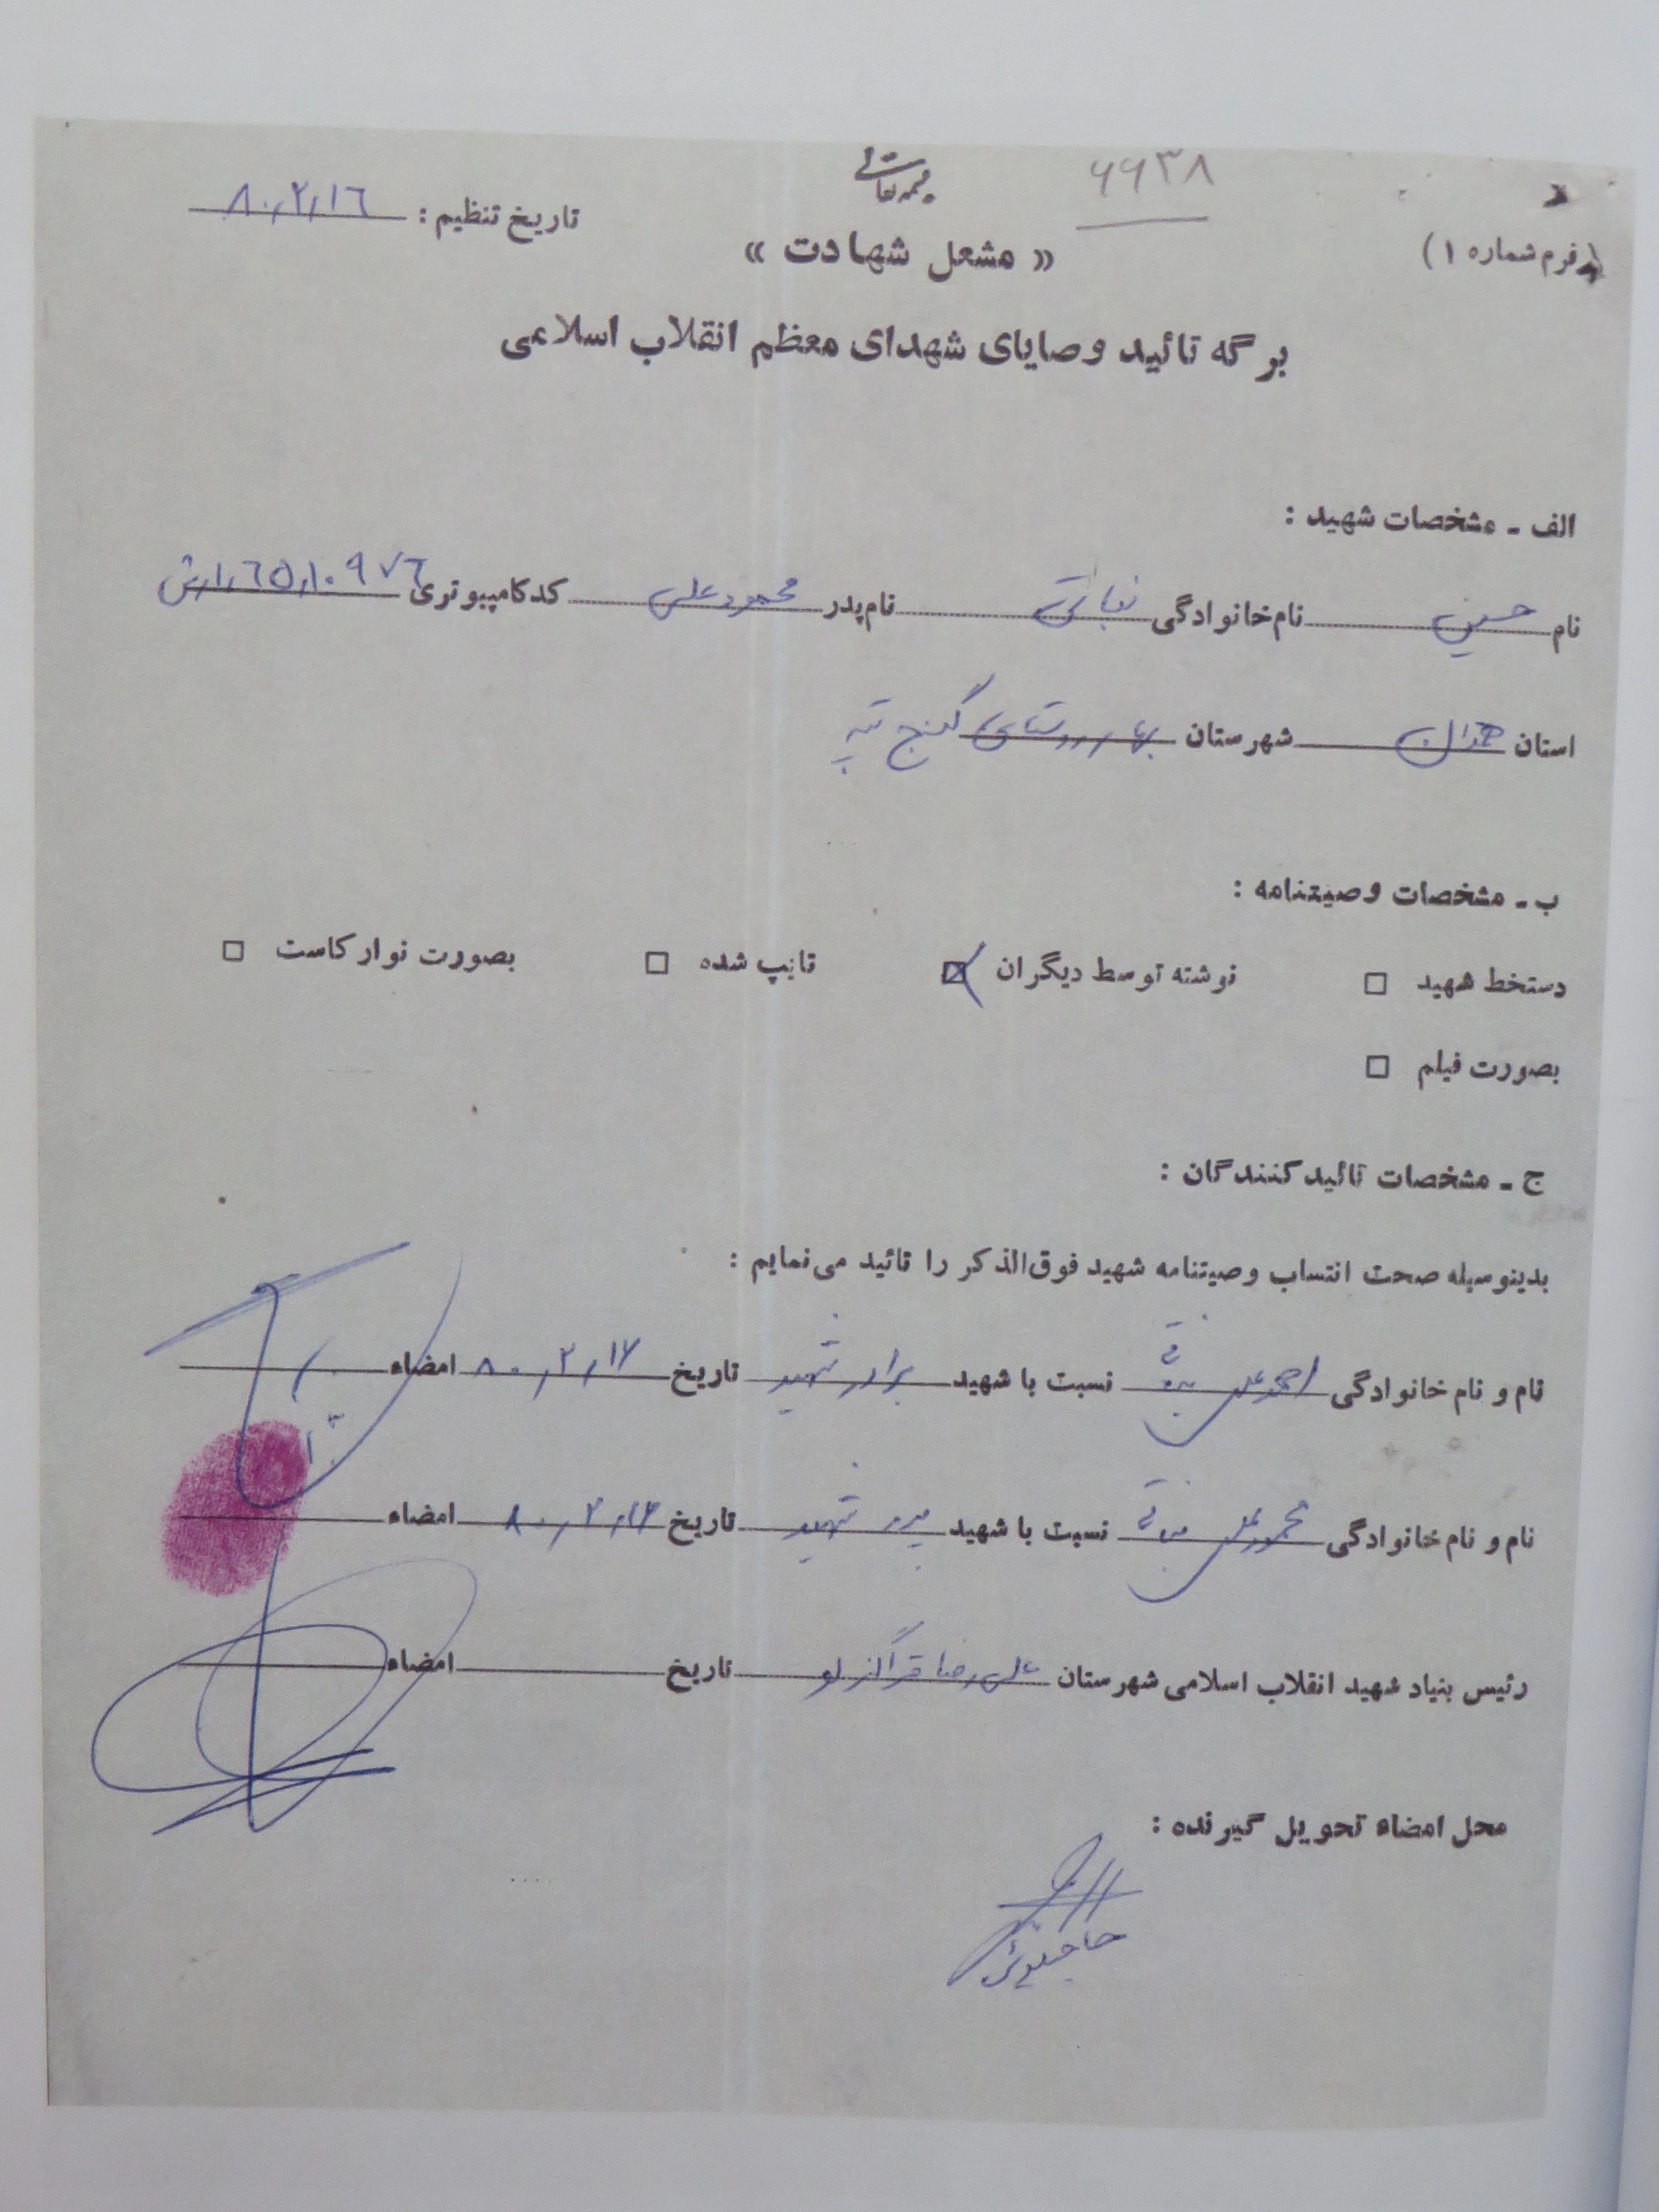 بسمه تعالی
۶۶۳۸
(فرم شماره ۱)
تاریخ تنظیم : ۸۰,۲,۱۶
« مشعل شهادت »
برگه تائید وصایای شهدای معظم انقلاب اسلامی
الف ـ مشخصات شهید :
نام حسین نام خانوادگی نباتی نام پدر محمودعلی کد کامپیوتری ۶۵,۱۰۹۷۶
استان همدان شهرستان بهار روستای گنج تپه
ب ـ مشخصات وصیتنامه :
دستخط شهید نوشته توسط دیگران تایپ شده بصورت نوار کاست
بصورت فیلم
ج ـ مشخصات تائید کنندگان :
بدینوسیله صحت انتساب وصیتنامه شهید فوق‌الذکر را تائید می‌نمایم :
نام و نام خانوادگی احمدعلی نباتی نسبت با شهید برادر شهید تاریخ ۸۰,۲,۱۷ امضاء
نام و نام خانوادگی محمودعلی نباتی نسبت با شهید پدر شهید تاریخ امضاء
رئیس بنیاد شهید انقلاب اسلامی شهرستان علی رضا قراگزلو تاریخ امضاء
محل امضاء تحویل گیرنده :